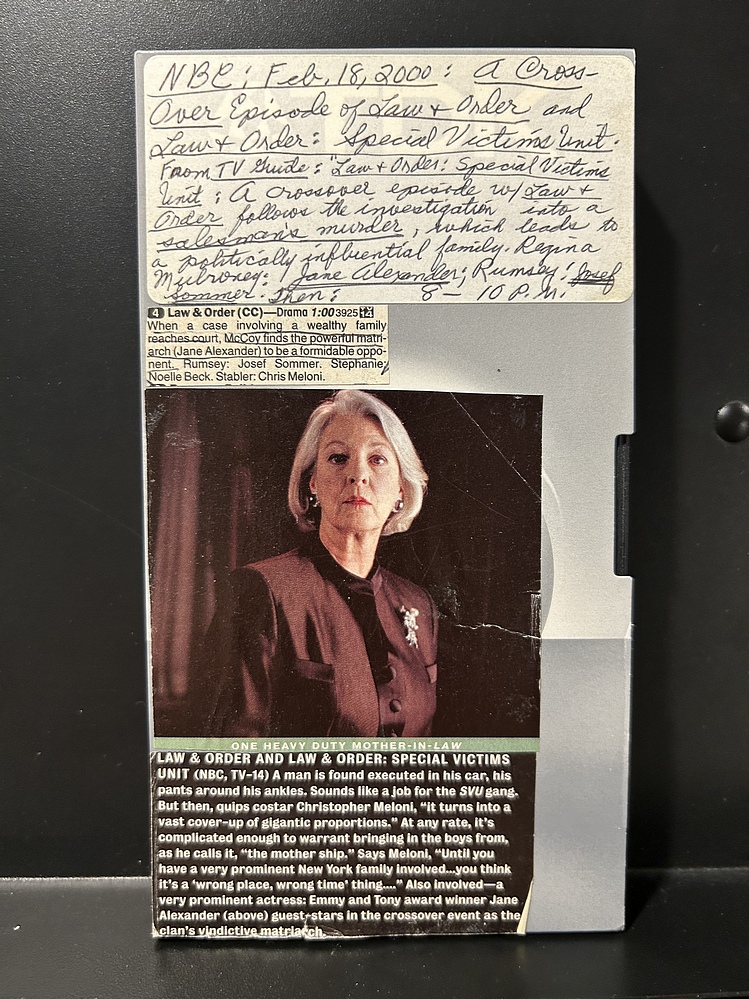 NBC; Feb. 18, 2000: A Cross-
Over Episode of Law + Order and
Law + Order: Special Victims Unit.
From TV Guide: "Law + Order: Special Victims
Unit: A crossover episode w/ Law +
Order follows the investigation into a
salesman's murder, which leads to
a politically influential family. Regina
Mulroney: Jane Alexander; Rumsey: Josef
Sommer. Then: 8 - 10 P.M.
4 Law & Order (CC)—Drama 1:00 3925
When a case involving a wealthy family
reaches court, McCoy finds the powerful matri-
arch (Jane Alexander) to be a formidable oppo-
nent. Rumsey: Josef Sommer. Stephanie:
Noelle Beck. Stabler: Chris Meloni.
ONE HEAVY DUTY MOTHER-IN-LAW
LAW & ORDER AND LAW & ORDER: SPECIAL VICTIMS
UNIT (NBC, TV-14) A man is found executed in his car, his
pants around his ankles. Sounds like a job for the SVU gang.
But then, quips costar Christopher Meloni, "it turns into a
vast cover-up of gigantic proportions." At any rate, it's
complicated enough to warrant bringing in the boys from,
as he calls it, "the mother ship." Says Meloni, "Until you
have a very prominent New York family involved...you think
it's a 'wrong place, wrong time' thing...." Also involved—a
very prominent actress: Emmy and Tony award winner Jane
Alexander (above) guest-stars in the crossover event as the
clan's vindictive matriarch.